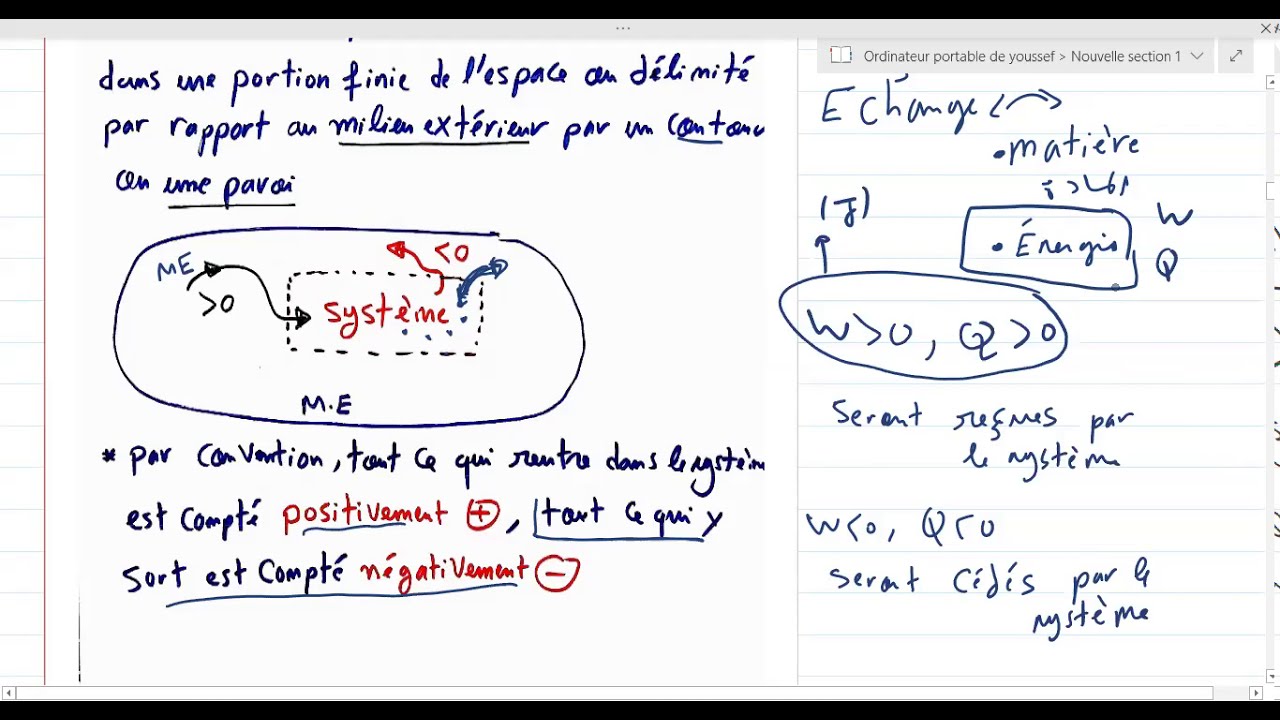 dans une portion finie de l'espace ou délimité
par rapport au milieu extérieur par un contour
ou une paroi
ME
>0
<0
système
M.E
* par convention, tout ce qui rentre dans le système
est compté positivement +, tout ce qui y
sort est compté négativement −
Ordinateur portable de youssef > Nouvelle section 1
Echange
• matière
(J)
• Énergie
W
Q
W>0, Q>0
Seront reçues par
le système
W<0, Q<0
seront Cédés par le
système